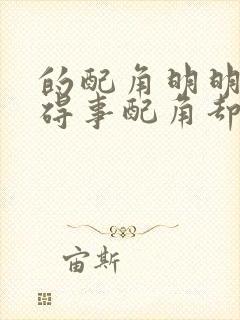 的配角明明
碍事配角却
宙斯